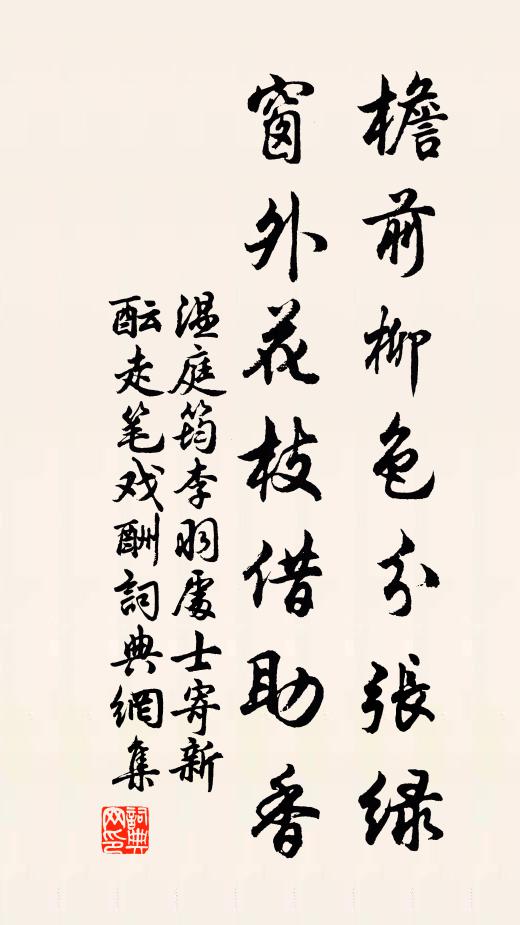 檐前柳色分張緑
窗外花枝借助香
温庭筠李羽處士寄新
酝走笔戏酬詞典網集
詞典